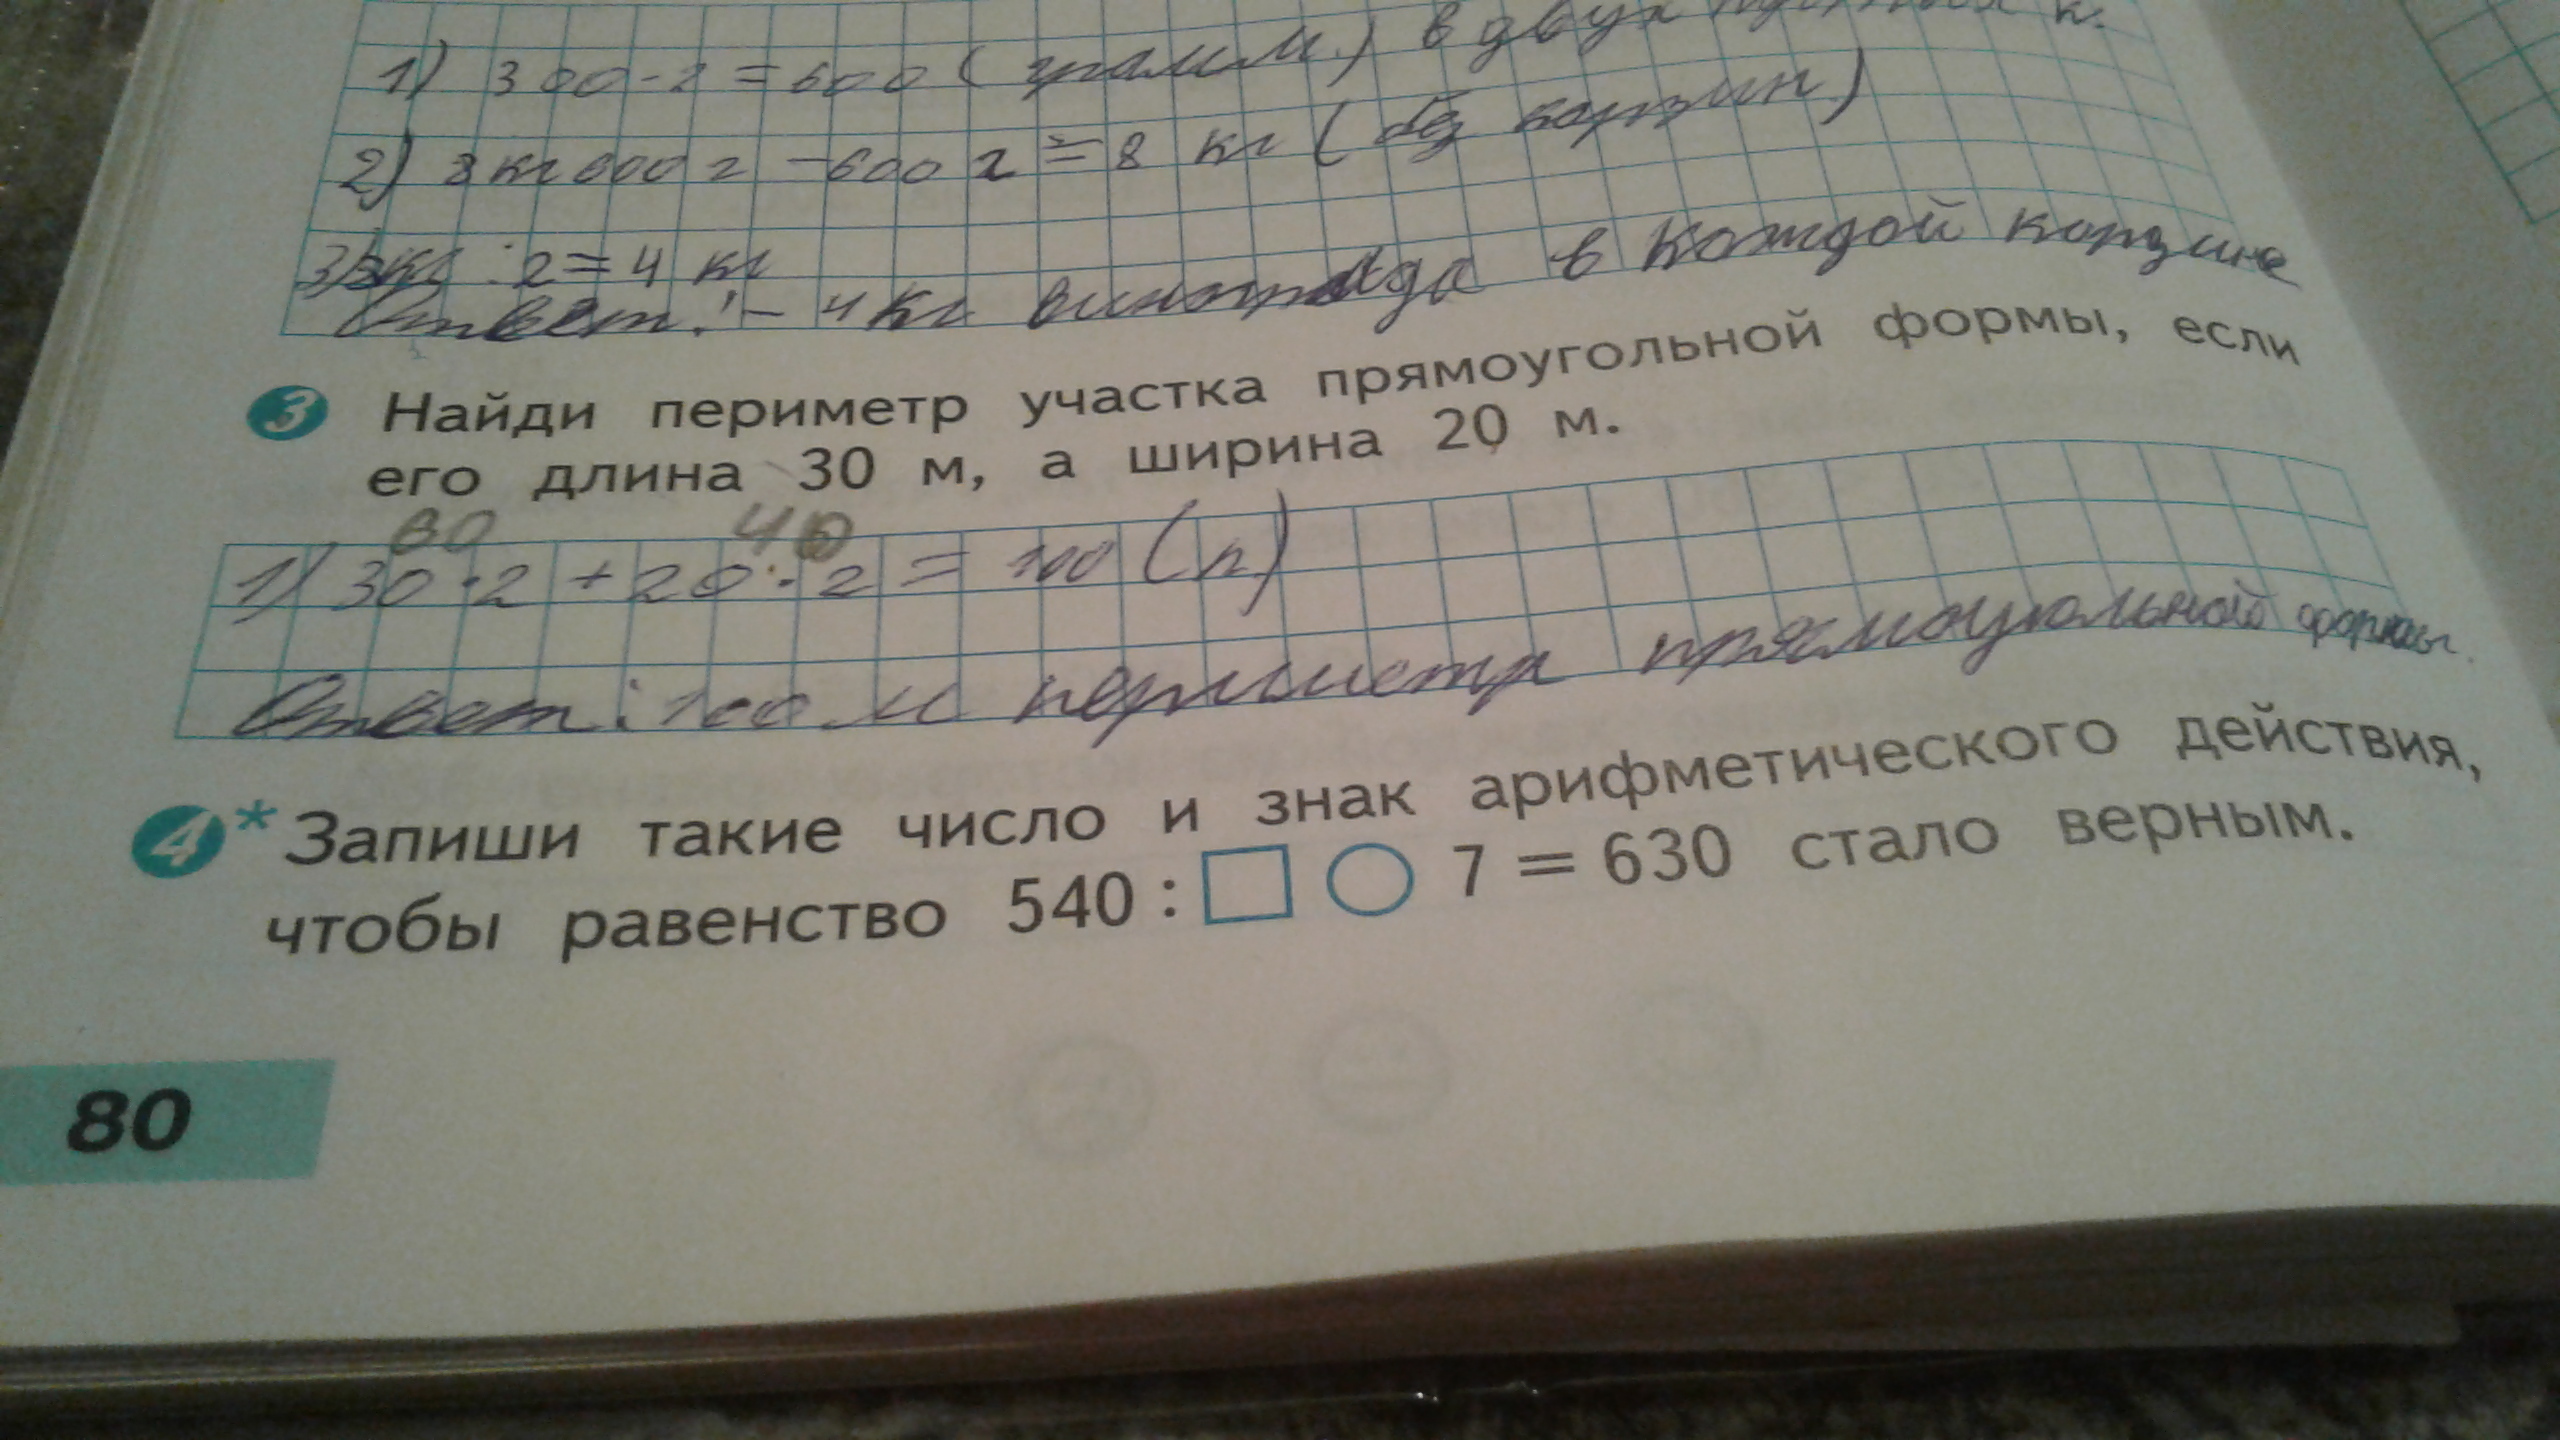 1) 300·2=600 (грамм.) в двух
2) 8 кг 600 г - 600 г = 8 кг (без корзин)
3) 8кг : 2 = 4 кг
Ответ: - 4 кг винограда в каждой корзине
3 Найди периметр участка прямоугольной формы, если
его длина 30 м, а ширина 20 м.
60 40
1) 30·2 + 20·2 = 100 (п)
Ответ: 100 м периметр прямоугольной формы.
4* Запиши такие число и знак арифметического действия,
чтобы равенство 540 : □ ○ 7 = 630 стало верным.
80